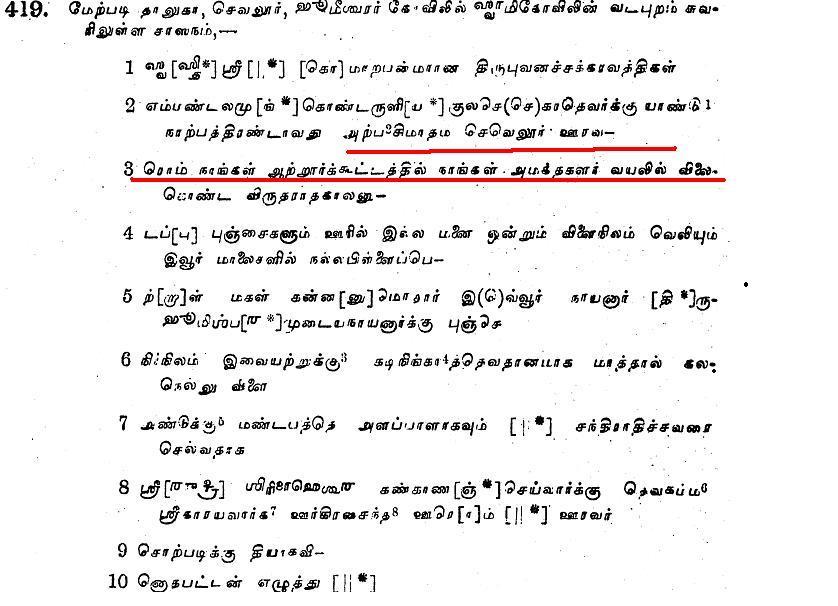 419. மேற்படி தாலுகா, செவலூர், ஹூமீஶ்வரர் கோவிலில் ஸ்வாமிகோவிலின் வடபுறம் சுவ-
ரிலுள்ள சாஸநம்,—
1 ஸ்வ[ஸ்தி*] ஸ்ரீ [|*] [கொ]மாறபன்மரான திருபுவனச்சக்கரவத்திகள்
2 எம்பண்டலமு[ங் *]கொண்டருளி[ய *] குலசெ(செ)காதெவர்க்கு யாண்டு1
நாற்பத்திரண்டாவது அற்ப2சிமாதம செவெலூர் ஊரல—
3 ரொம் நாங்கள் ஆற்றூர்க்கூட்டத்தில் நாங்கள் அமக்தகளர் வயலில் விலை-
கொண்ட விருதராதகாலனு—
4 டப்[பு] புஞ்சைகளும் ஊரில் இல்ல மனை ஒன்றும் விளைநிலம் வெலியும்
இவூர் மாலைசளில் நல்லபிள்ளைப்பெ—
5 ற்[று]ள் மகள் கன்ன[னு]மொதார் இ(வ்)வ்வூர் நாயனார் [தி *]ரு-
ஹூமிஶ்ப[ர *]முடையநாயனார்க்கு புஞ்செ
6 நிர்நிலம் இவையற்றுக்கு3 கடிநிங்கா4த்தெவதானமாக மாத்தால் கல-
நெல்லு விளை
7 அண்டுக்கு5 மண்டபத்தெ அளப்பாளாகவும் [|*] சந்திராதிச்சவரை
செல்வதாக
8 ஸ்ரீ கண்காண[ஞ் *]செய்வார்க்கு தெவகப்ம6
ஸ்ரீகாரயவார்க7 ஊர்கிரசைந்த8 ஊரெ[ா]ம் [||*] ஊரவர்
9 சொற்படிக்கு தியாகவி—
10 னொதபட்டன் எழுத்து [||*]